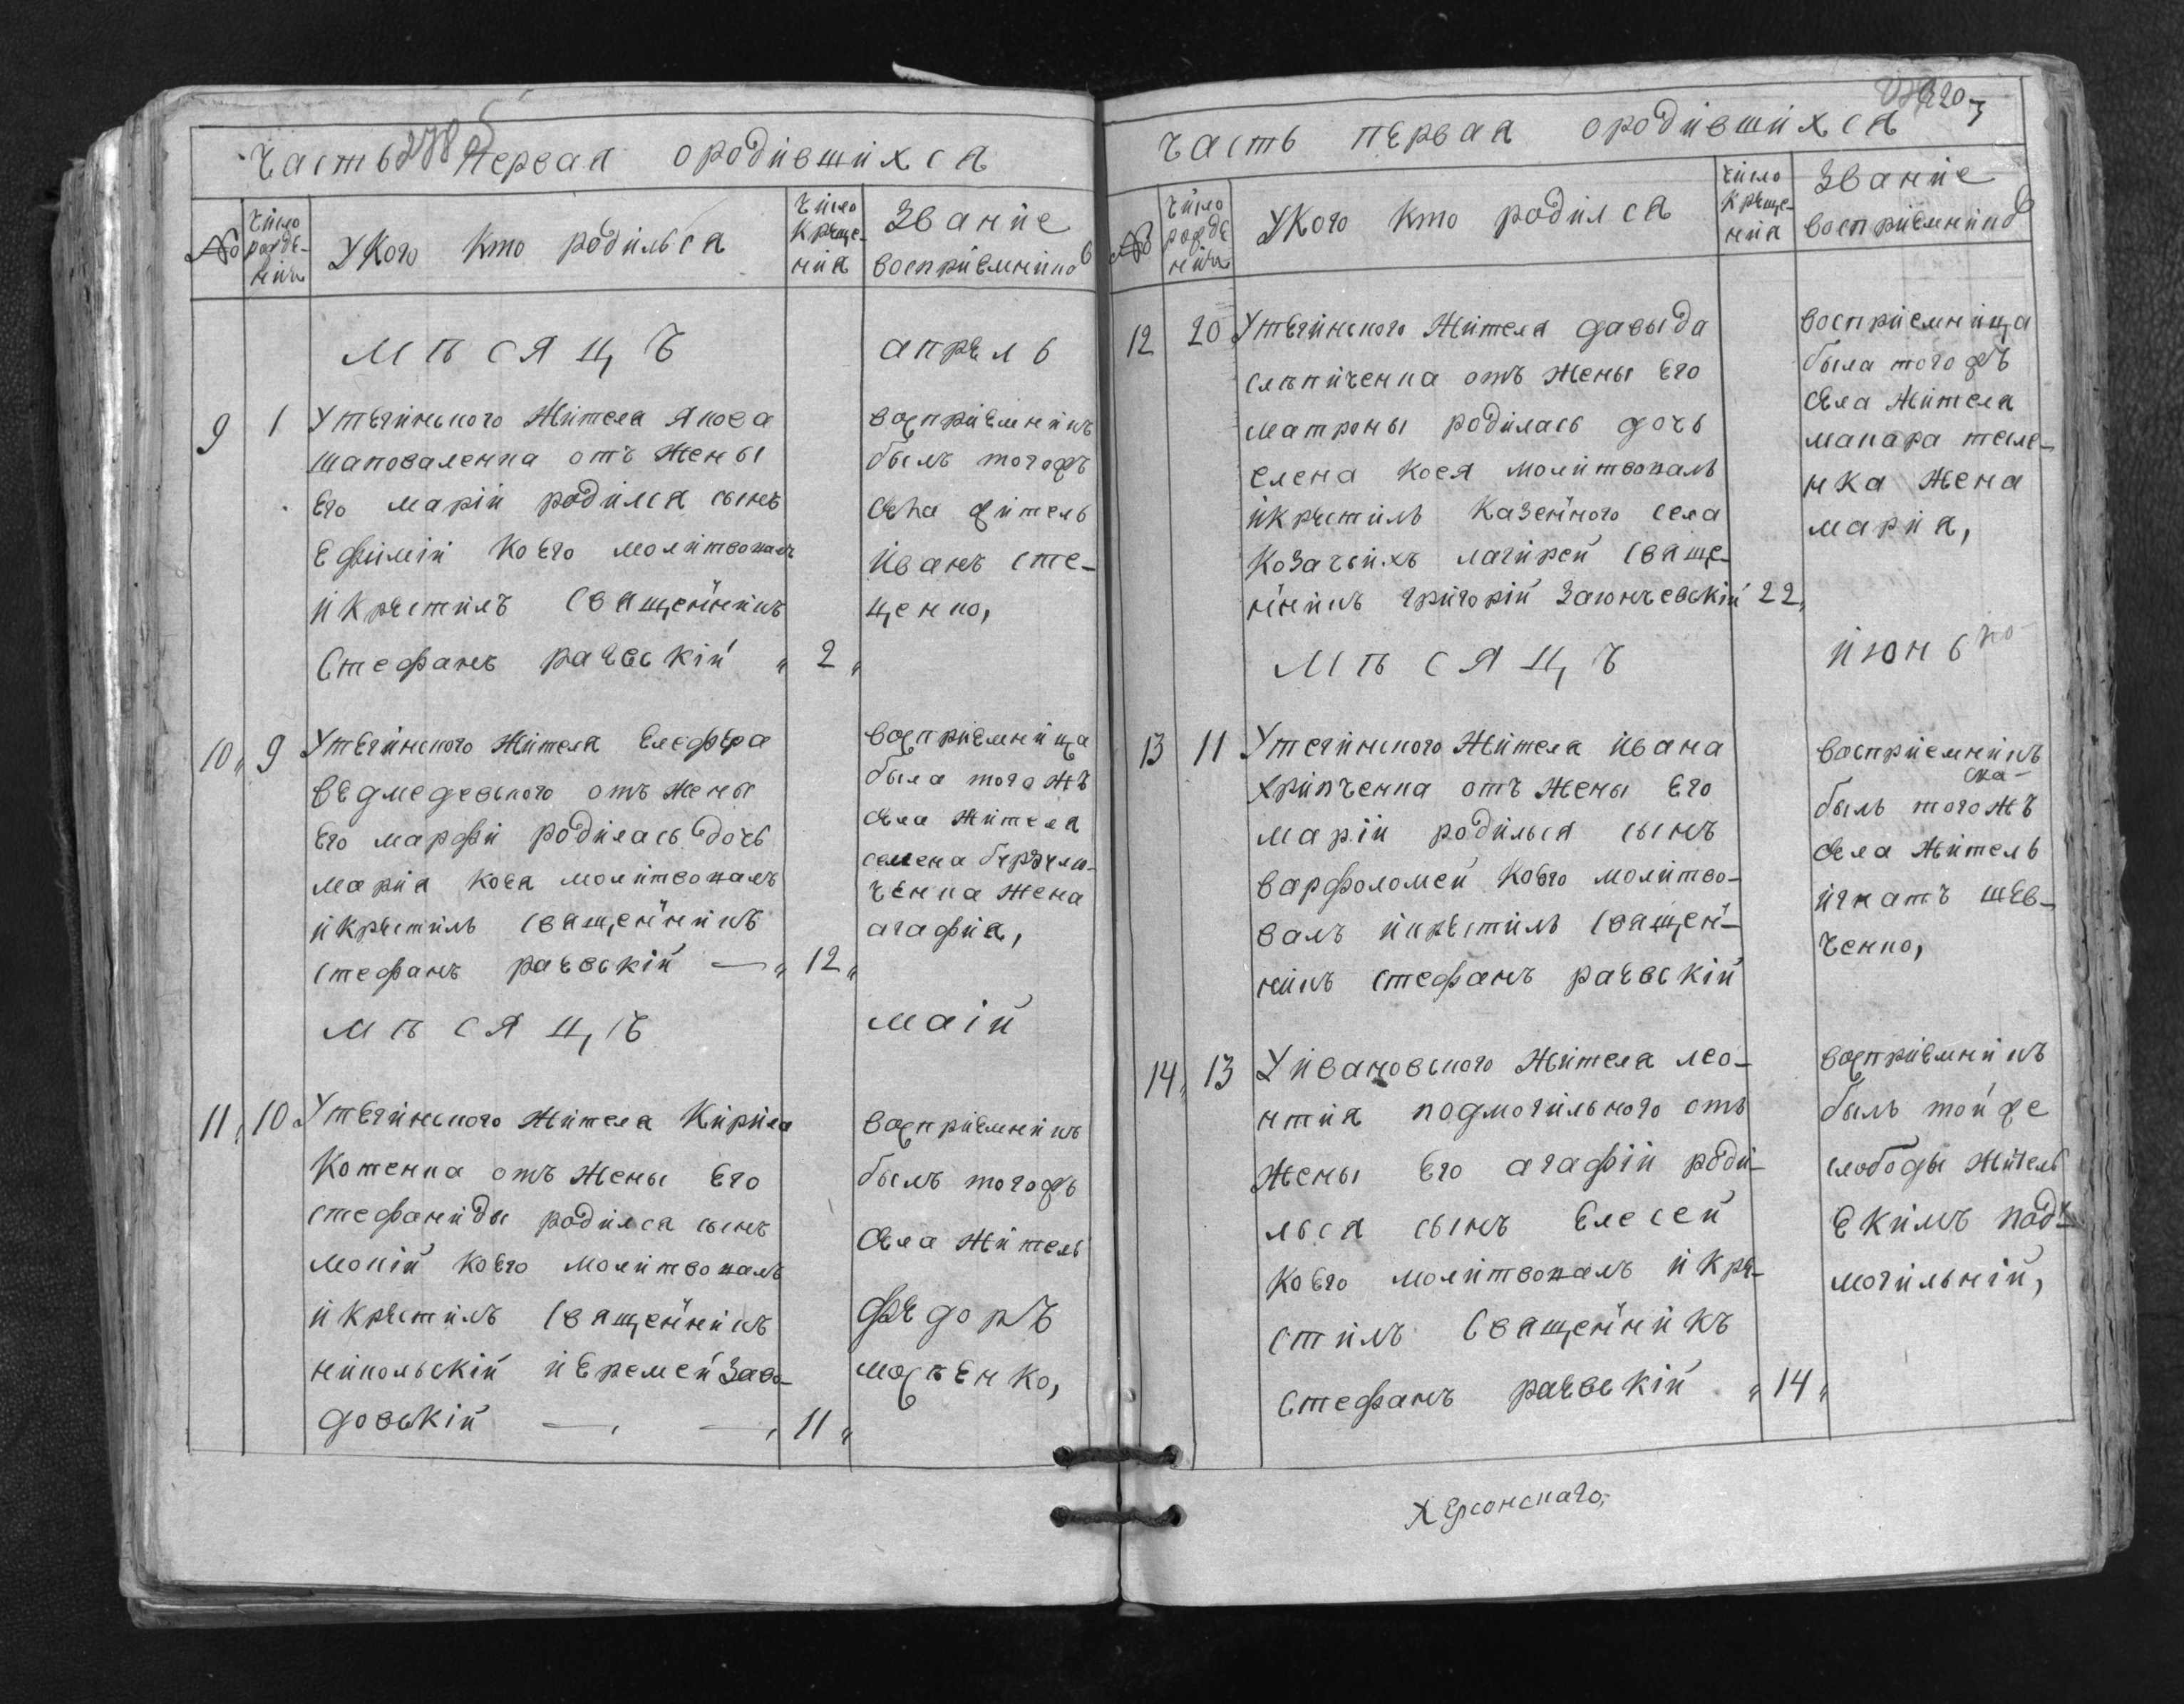 часть первая ородившихся
278
№
число рожде- нія
У Кого кто родилься
число креще- нія
Званіе восприемниковъ
мѣсяцъ апрель
9 1 У тегинького жителя якова
шаповаленка отъ жены
его маріи родился сынъ
Ефимій коего молитвовалъ
и крестилъ священникъ
Стефанъ раевькій 2
восприемникъ
былъ тогожъ
села житель
Иванъ сте-
ценко,
10 9 У тегинского жителя Елефера
ведмедевького отъ жены
его марфи родилась дочь
марія коея молитвовалъ
и крестилъ священникъ
стефанъ раевькій 12
восприемница
была тогожъ
села жителя
семена
ченка жена
агафия,
мѣсяцъ маій
11 10 У тегинького жителя Кирила
Котенка отъ жены Его
стефаниды родился сынъ
мокій коего молитвовалъ
и крестилъ священникъ
никольскій и Еремей Заво-
довькій 11
восприемникъ
былъ тогожъ
села житель
федоръ
мосѣенко,
часть первая ородившихся
220
№
число рожде нія
У Кого кто родился
число креще- нія
Званіе восприемниковъ
12 20 У тегинького жителя давыда
слепиченка отъ жены Его
матроны родилась дочь
елена коея молитвовалъ
и крестилъ казенного села
козачьихъ лагирей свяще-
нникъ григорій Заюнчевскій 22
восприемница
была тогожъ
села жителя
макара теле-
нка жена
мария,
мѣсяцъ июнь
13 11 У тегинького жителя ивана
хрипченка отъ жены Его
маріи родилься сынъ
варфоломей коего молитво-
валъ и крестилъ священ-
никъ стефанъ раевскій
восприемникъ
былъ тогожъ
села житель
игнатъ шев-
ченко,
14 13 У ивановького жителя лео-
нтия подмогильного отъ
жены Его агафіи роди-
лься сынъ Елесей
коего молитвовалъ и кре-
стилъ священникъ
стефанъ раевькій 14
восприемникъ
былъ той же
слободы житель
Екимъ под-
могильній,
Херсонскаго,